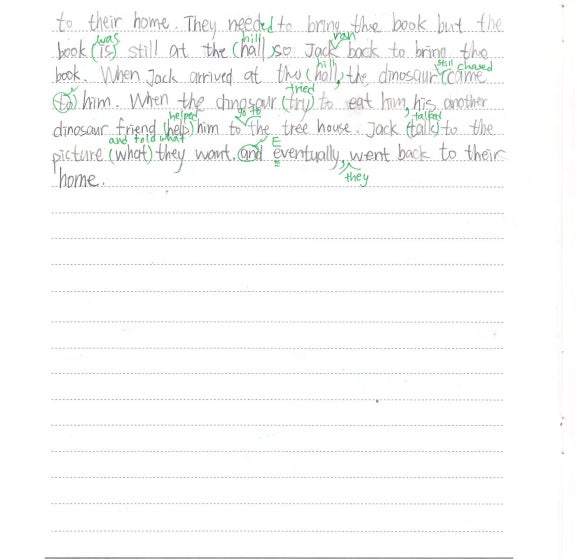 to their home. They needed to bring the book but the
was hill ran
book (is) still at the (hall) so Jack back to bring the
hill still chased
book. When Jack arrived at the (hall), the dinosaur (came
tried
to) him. When the dinosaur (try) to eat him, his another
helped go to talked
dinosaur friend (help) him to the tree house. Jack (talk) to the
and told what E
picture (what) they want. and eventually, went back to their
they
home.